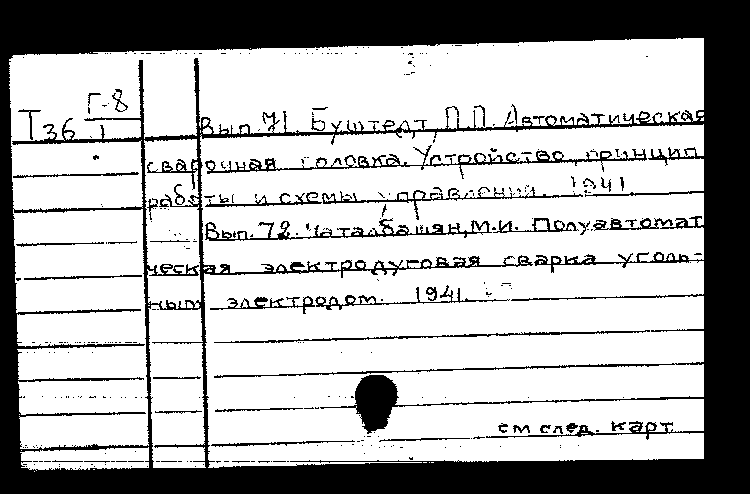 3
Г-8
Т36 1
Вып. 71. Буштедт, П.П. Автоматическая
сварочная головка. Устройство, принцип
работы и схемы управления. 1941.
Вып. 72. Чаталбашян, М.И. Полуавтомат
ческая электродуговая сварка уголь-
ным электродом. 1941.
см след. карт.